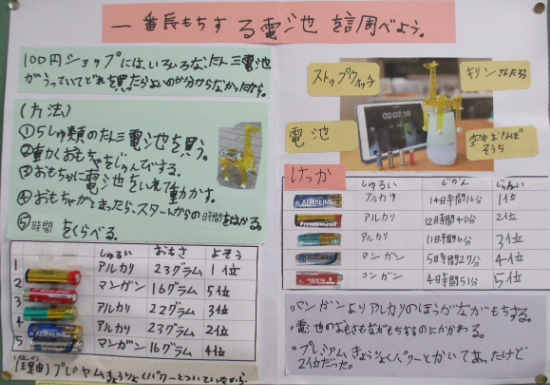 一番長もちする電池を調べよう。
100円ショップには、いろいろな、たん三電池
がうっていてどれを買ったらよいのか分からなかったから。
(方法)
①5しゅ類のたん三電池を買う。
②動くおもちゃをじゅんびする。
③おもちゃに電池をいれて動かす。
④おもちゃがとまったら、スタートからの日時間をはかる。
⑤時間をくらべる。
しゅるい おもさ よそう
1 アルカリ 23グラム 1位
2 マンガン 16グラム 5位
3 アルカリ 22グラム 3位
4 アルカリ 23グラム 2位
5 マンガン 16グラム 4位
(理由)プレミヤムきょうりょくパワーとついているから
ストップウォッチ
キリン
電池
空中おさんぽ
そうち
02:07.18
けっか
しゅるい じかん じゅんい
ALKALINE アルカリ 14日時間16分 1位
アルカリ 12日時間40分 2位
アルカリ 11日時間16分 3位
マンガン 5日時間27分 4位
マンガン 4日時間51分 5位
・マンガンよりアルカリのほうがながもちする。
・電池のおもさもながもちするのにかかわる。
・プレミアムきょうりょくパワーとかいてあったけど
2位だった。